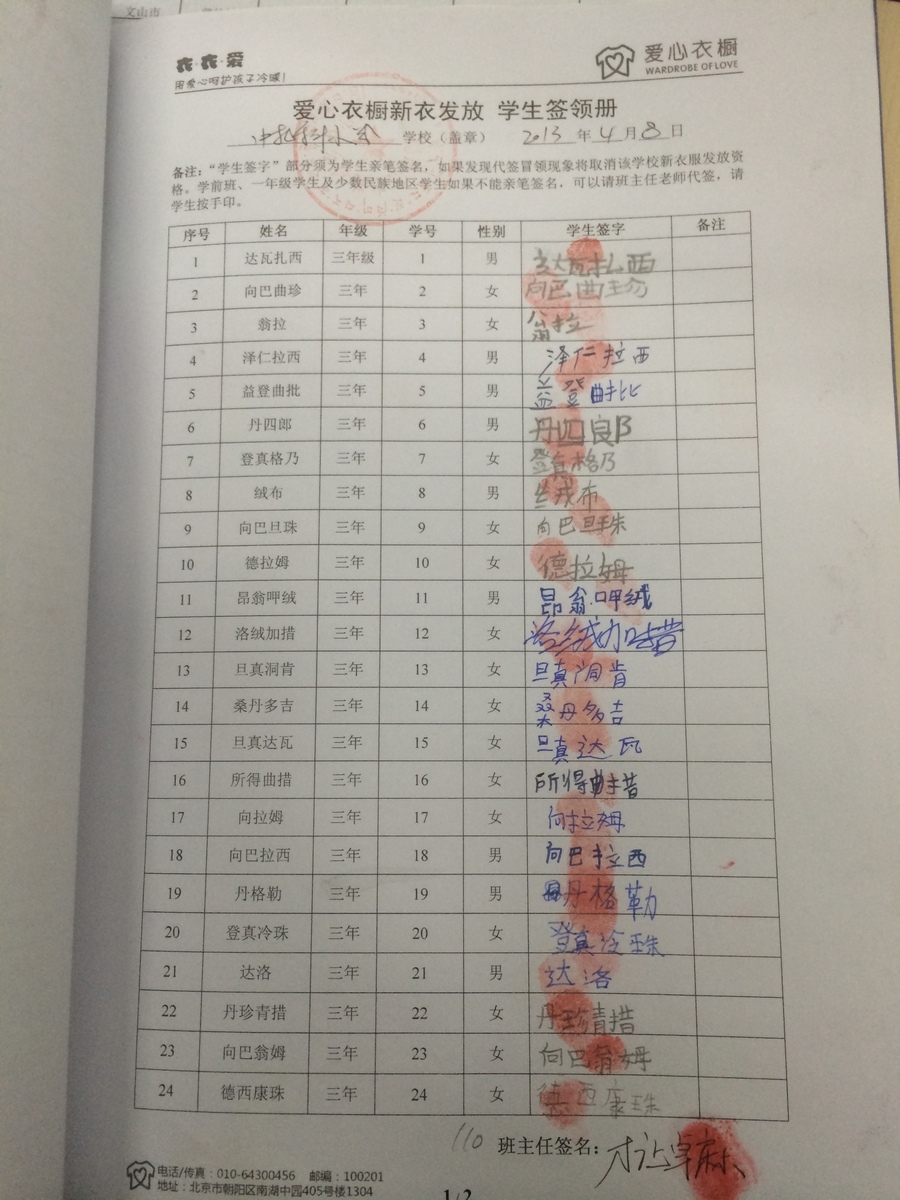 文山市
衣·衣·爱
用爱心呵护孩子冷暖!
爱心衣橱
WARDROBE OF LOVE
爱心衣橱新衣发放 学生签领册
学校（盖章） 2013 年 4 月 8 日
备注：“学生签字”部分须为学生亲笔签名，如果发现代签冒领现象将取消该学校新衣服发放资
格。学前班、一年级学生及少数民族地区学生如果不能亲笔签名，可以请班主任老师代签，请
学生按手印。
序号 姓名 年级 学号 性别 学生签字 备注
1 达瓦扎西 三年级 1 男 达瓦扎西
2 向巴曲珍 三年 2 女 向巴曲珍
3 翁拉 三年 3 女 翁拉
4 泽仁拉西 三年 4 男 泽仁拉西
5 益登曲批 三年 5 男 益登曲批
6 丹四郎 三年 6 男 丹四郎
7 登真格乃 三年 7 女 登真格乃
8 绒布 三年 8 男 绒布
9 向巴旦珠 三年 9 女 向巴旦珠
10 德拉姆 三年 10 女 德拉姆
11 昂翁呷绒 三年 11 男 昂翁呷绒
12 洛绒加措 三年 12 女 洛绒加措
13 旦真洞肯 三年 13 女 旦真洞肯
14 桑丹多吉 三年 14 女 桑丹多吉
15 旦真达瓦 三年 15 女 旦真达瓦
16 所得曲措 三年 16 女 所得曲措
17 向拉姆 三年 17 女 向拉姆
18 向巴拉西 三年 18 男 向巴拉西
19 丹格勒 三年 19 男 丹格勒
20 登真冷珠 三年 20 女 登真冷珠
21 达洛 三年 21 男 达洛
22 丹珍青措 三年 22 女 丹珍青措
23 向巴翁姆 三年 23 女 向巴翁姆
24 德西康珠 三年 24 女 德西康珠
110 班主任签名：
电话/传真：010-64300456 邮编：100201
地址：北京市朝阳区南湖中园405号楼1304
1/2